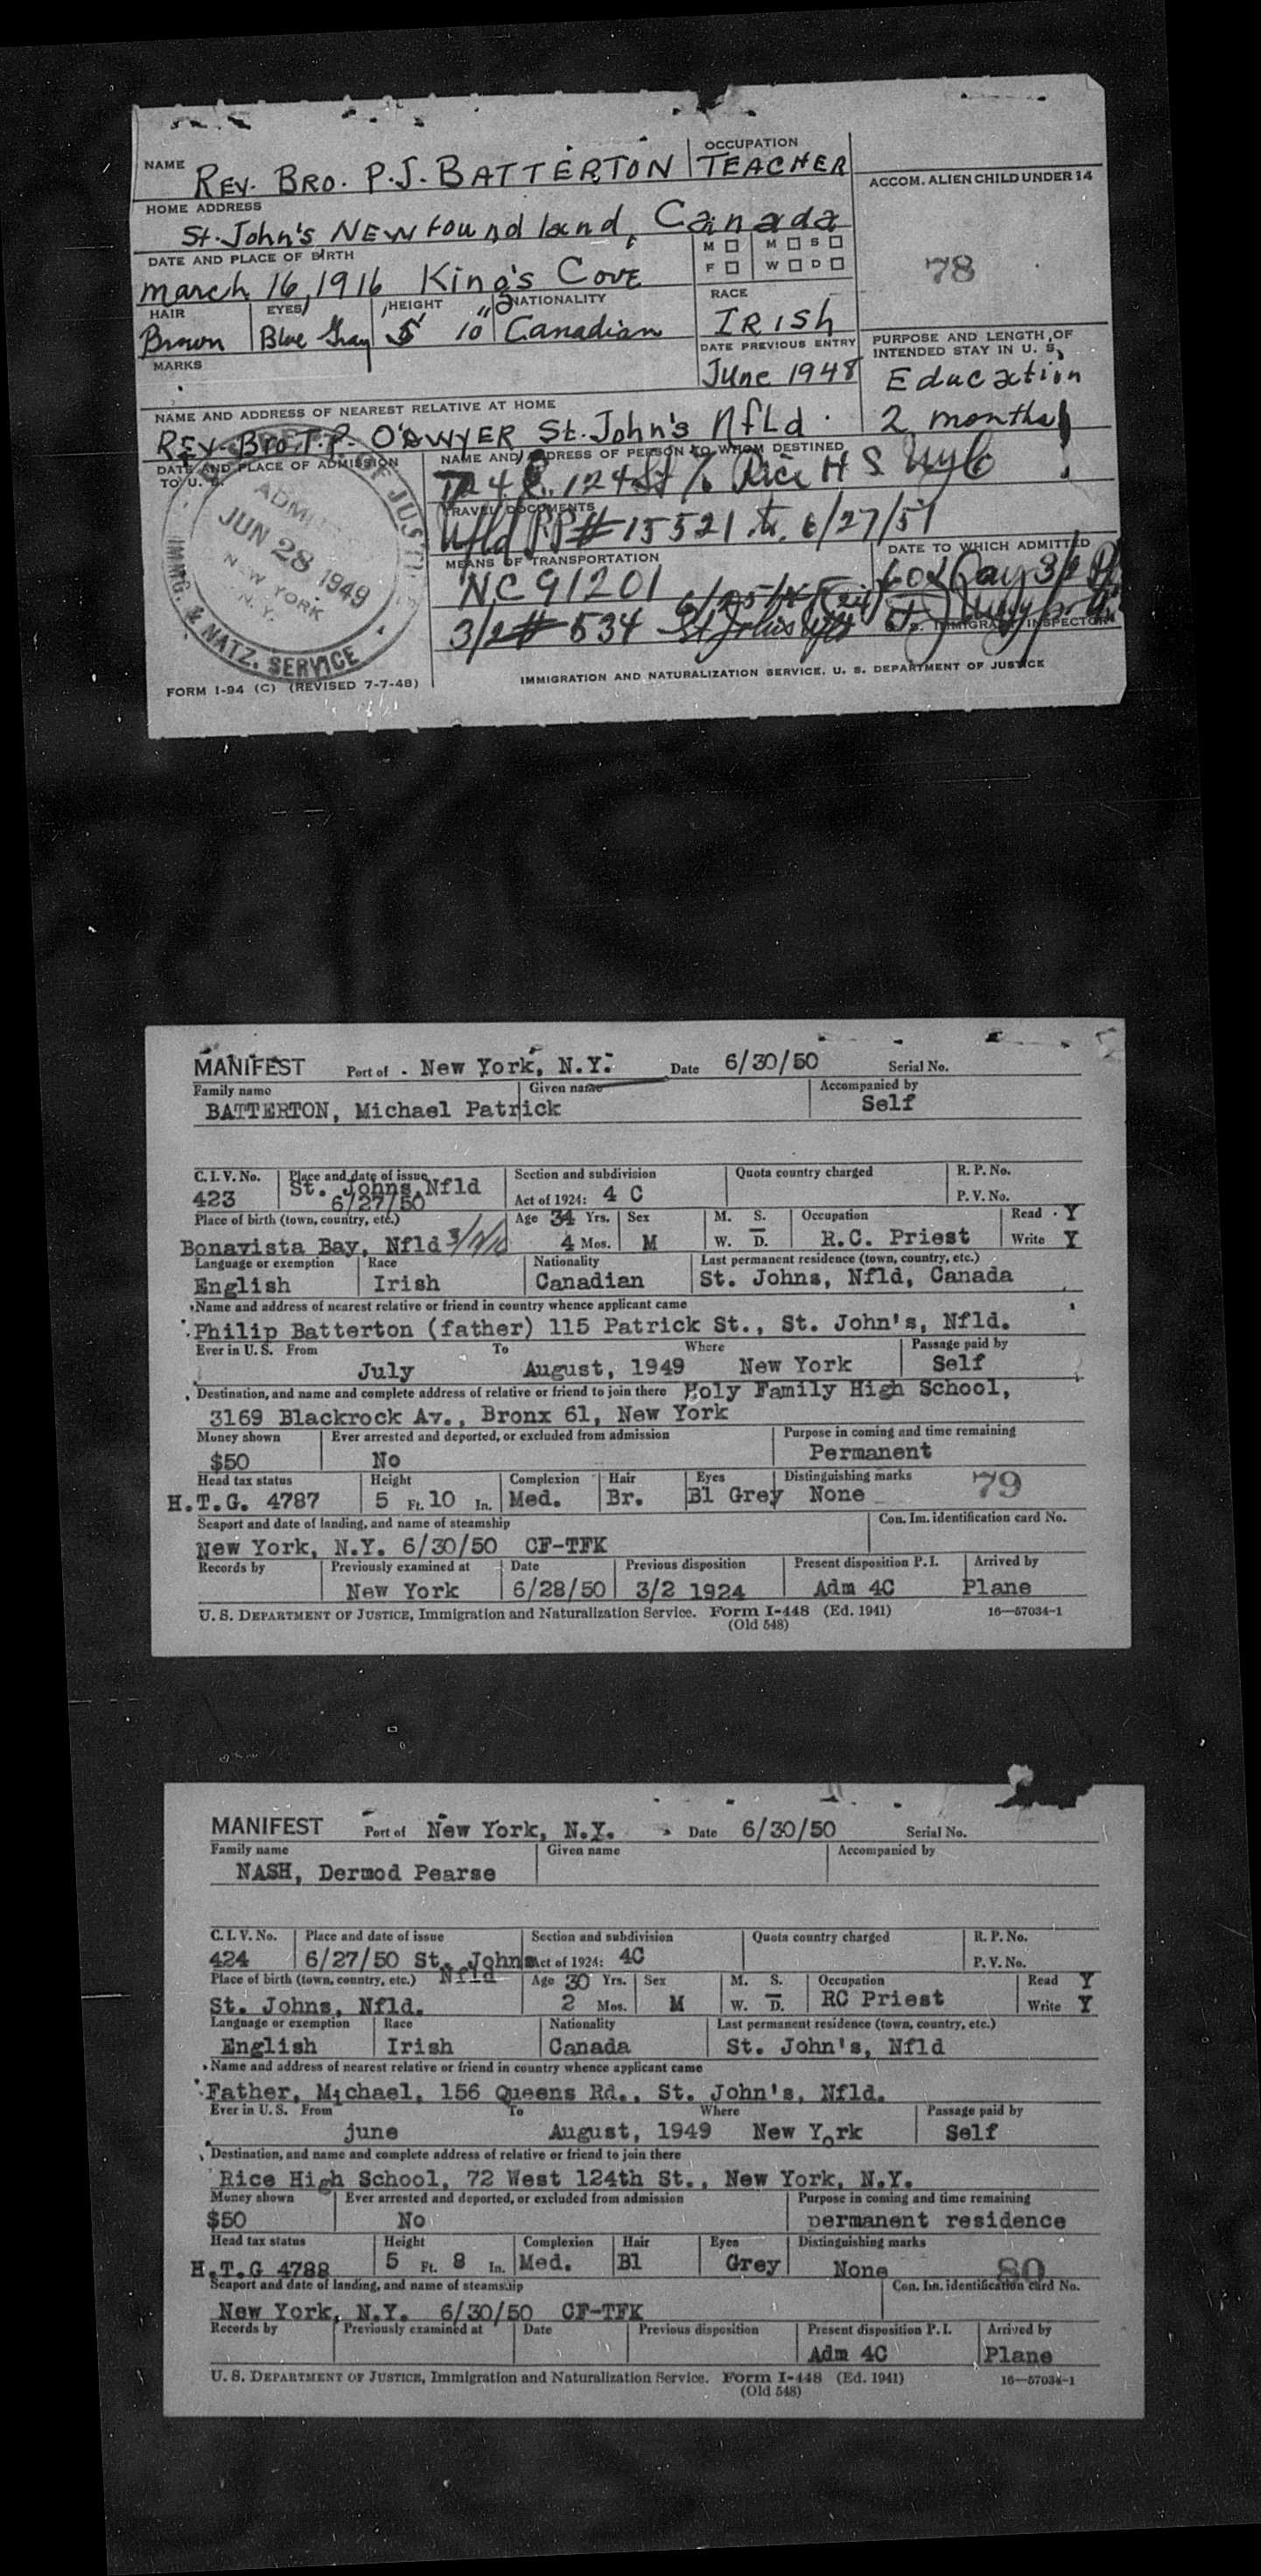 NAME REV. BRO. P.J. BATTERTON OCCUPATION TEACHER
ACCOM. ALIEN CHILD UNDER 14
HOME ADDRESS
St. John's NEWfoundland, Canada
DATE AND PLACE OF BIRTH M M S
F W D
78
march 16, 1916 King's COVE
HAIR EYES HEIGHT NATIONALITY RACE
Brown Blue Gray 5' 10" Canadian IRISh
MARKS DATE PREVIOUS ENTRY
June 1948
PURPOSE AND LENGTH OF
INTENDED STAY IN U. S.
Education
2 months
NAME AND ADDRESS OF NEAREST RELATIVE AT HOME
REV. Bro. T.P. O'DWYER St. John's Nfld.
DATE AND PLACE OF ADMISSION
TO U.
NAME AND ADDRESS OF PERSON TO WHOM DESTINED
124 St % Rice H S
TRAVEL DOCUMENTS
Nfld PP# 15521 to 6/27/51
MEANS OF TRANSPORTATION DATE TO WHICH ADMITTED
NC 91201
3/2 # 534 St Johns Nfld
IMMIGRANT INSPECTOR
OF JUSTICE
JUN 28 1949
NEW YORK
N.Y.
IMMG. & NATZ. SERVICE
FORM I-94 (C) (REVISED 7-7-48) IMMIGRATION AND NATURALIZATION SERVICE. U. S. DEPARTMENT OF JUSTICE
MANIFEST Port of New York, N.Y. Date 6/30/50 Serial No.
Family name Given name Accompanied by
BATTERTON, Michael Patrick Self
C. I. V. No. Place and date of issue Section and subdivision Quota country charged R. P. No.
423 St. Johns, Nfld 6/27/50 Act of 1924: 4 C P. V. No.
Place of birth (town, country, etc.) Age 34 Yrs. Sex M. S. Occupation Read Y
Bonavista Bay, Nfld 4 Mos. M W. D. R.C. Priest Write Y
Language or exemption Race Nationality Last permanent residence (town, country, etc.)
English Irish Canadian St. Johns, Nfld, Canada
Name and address of nearest relative or friend in country whence applicant came
Philip Batterton (father) 115 Patrick St., St. John's, Nfld.
Ever in U. S. From To Where Passage paid by
July August, 1949 New York Self
Destination, and name and complete address of relative or friend to join there Holy Family High School,
3169 Blackrock Av., Bronx 61, New York
Money shown Ever arrested and deported, or excluded from admission Purpose in coming and time remaining
$50 No Permanent
Head tax status Height Complexion Hair Eyes Distinguishing marks 79
H.T.G. 4787 5 Ft. 10 In. Med. Br. Bl Grey None
Seaport and date of landing, and name of steamship Con. Im. identification card No.
New York, N.Y. 6/30/50 CF-TFK
Records by Previously examined at Date Previous disposition Present disposition P. I. Arrived by
New York 6/28/50 3/2 1924 Adm 4C Plane
U. S. DEPARTMENT OF JUSTICE, Immigration and Naturalization Service. Form I-448 (Ed. 1941) 16—57034-1
(Old 548)
MANIFEST Port of New York, N.Y. Date 6/30/50 Serial No.
Family name Given name Accompanied by
NASH, Dermod Pearse
C. I. V. No. Place and date of issue Section and subdivision Quota country charged R. P. No.
424 6/27/50 St. Johns Nfld Act of 1924: 4C P. V. No.
Place of birth (town, country, etc.) Age 30 Yrs. Sex M. S. Occupation Read Y
St. Johns, Nfld. 2 Mos. M W. D. RC Priest Write Y
Language or exemption Race Nationality Last permanent residence (town, country, etc.)
English Irish Canada St. John's, Nfld
Name and address of nearest relative or friend in country whence applicant came
Father, Michael, 156 Queens Rd., St. John's, Nfld.
Ever in U. S. From To Where Passage paid by
june August, 1949 New York Self
Destination, and name and complete address of relative or friend to join there
Rice High School, 72 West 124th St., New York, N.Y.
Money shown Ever arrested and deported, or excluded from admission Purpose in coming and time remaining
$50 No permanent residence
Head tax status Height Complexion Hair Eyes Distinguishing marks
H.T.G 4788 5 Ft. 8 In. Med. Bl Grey None 80
Seaport and date of landing, and name of steamship Con. Im. identification card No.
New York, N.Y. 6/30/50 CF-TFK
Records by Previously examined at Date Previous disposition Present disposition P. I. Arrived by
Adm 4C Plane
U. S. DEPARTMENT OF JUSTICE, Immigration and Naturalization Service. Form I-448 (Ed. 1941) 16—57034-1
(Old 548)